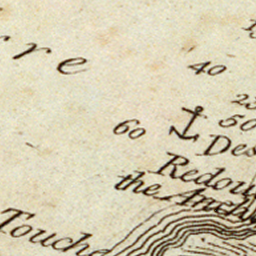 rre
40
60
50
Des
Redou
the Anch
Touche